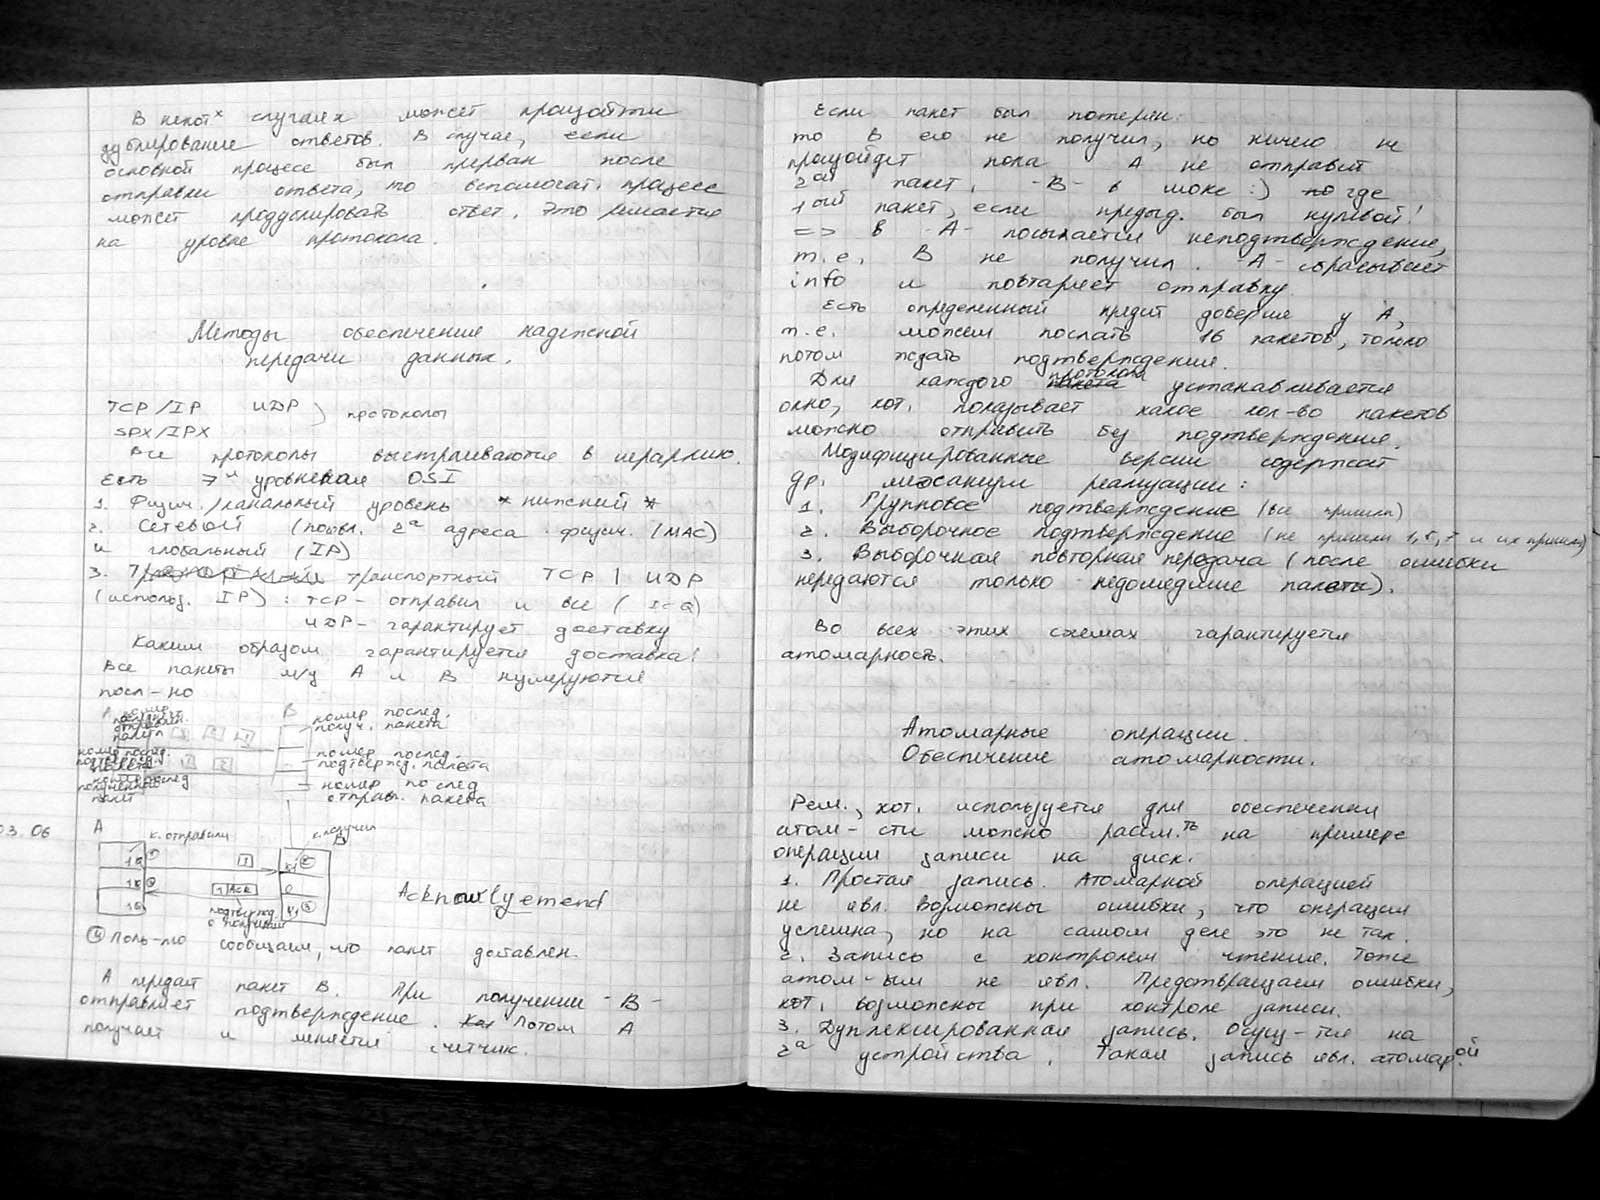 В некот^х случаях может произойти
дублирование ответов. В случае, если
основной процесс был прерван после
отправки ответа, то вспомогат. процесс
может продуслировать ответ. Это решается
на уровне протокола.
Методы обеспечение надежной
передачи данных.
TCP/IP UDP } протоколы
SPX/IPX
Все протоколы выстраиваются в иерархию.
Есть 7^и уровневая OSI
1. Физич./канальный уровень * нижний *
2. Сетевой (появл. 2^а адреса физич. (MAC)
и глобальный (IP)
3. транспортный TCP | UDP
(использ. IP) : TCP - отправил и все (ICQ)
UDP - гарантирует доставку
Каким образом гарантируется доставка?
Все пакеты м/у A и B нумеруются
посл-но
A B
номер послед.
получ. пакета
номер послед.
подтвержд. пакета
номер послед
отправ. пакета
номер послед.
подтвержд.
пакета
номер послед
полученного
пакет
03.06
A к. отправили к. получил B
1 1 Ack
подтвержд.
о получении
Acknowlyemend
④ Поль-лю сообщаем, что пакет доставлен.
A передаёт пакет B. При получении -B-
отправляет подтверждение. Потом A
получает и меняется счетчик.
Если пакет был потерян:
то B его не получил, но ничего не
произойдет пока A не отправит
2^ой пакет. -B- в шоке :) где
1^ый пакет, если предыд. был нулевой!
=> в -A- посылается неподтверждение,
т.е. B не получил. -A- сбрасывает
info и повтаряет отправку.
Есть определенный кредит доверие у A,
т.е. можем послать 16 пакетов, только
потом ждать подтверждения.
Для каждого протокола устанавливается
окно, кот. показывает какое кол-во пакетов
можно отправить без подтверждения.
Модифицированные версии содержат
др. механизм реализации:
1. Групповое подтверждение (все пришли)
2. Выборочное подтверждение (не пришли
3. Выборочная повторная передача (после ошибки
передаются только недошедшие пакеты).
Во всех этих схемах гарантируется
атомарность.
Атомарные операции.
Обеспечение атомарности.
Реш., кот. используется для обеспечения
атом-сти можно рассм.^ть на примере
операции записи на диск.
1. Простая запись. Атомарной операцией
не явл. Возможны ошибки, что операция
успешна, но на самом деле это не так.
2. Запись с контролем чтения. Тоже
атом-ым не явл. Предотвращаем ошибки,
кот. возможны при контроле записи.
3. Дуплексированная запись. Осущ-тся на
2^а устройства. Такая запись явл. атомар^ой.